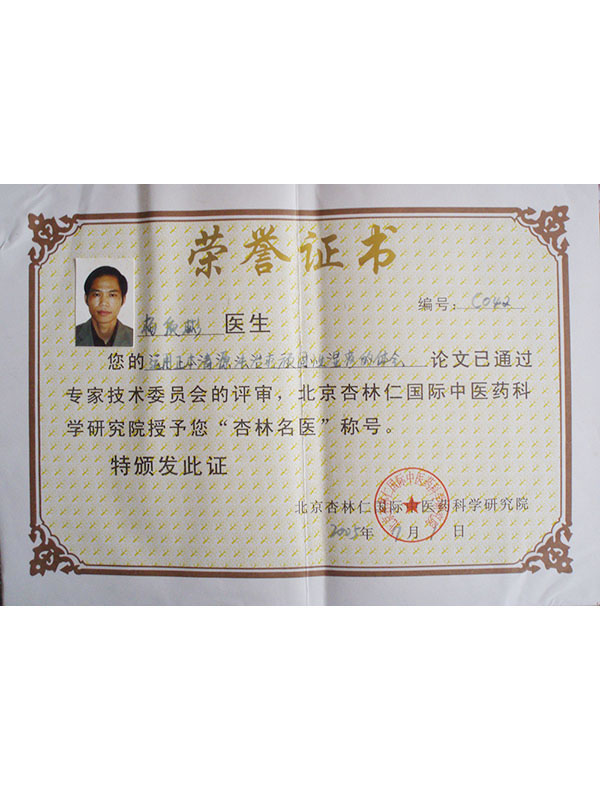 荣誉证书
编号：C042
医生
您的运用正本清源法治疗顽固性湿疹的体会 论文已通过
专家技术委员会的评审，北京杏林仁国际中医药科
学研究院授予您“杏林名医”称号。
特颁发此证
北京杏林仁国际中医药科学研究院
2005年11月 日